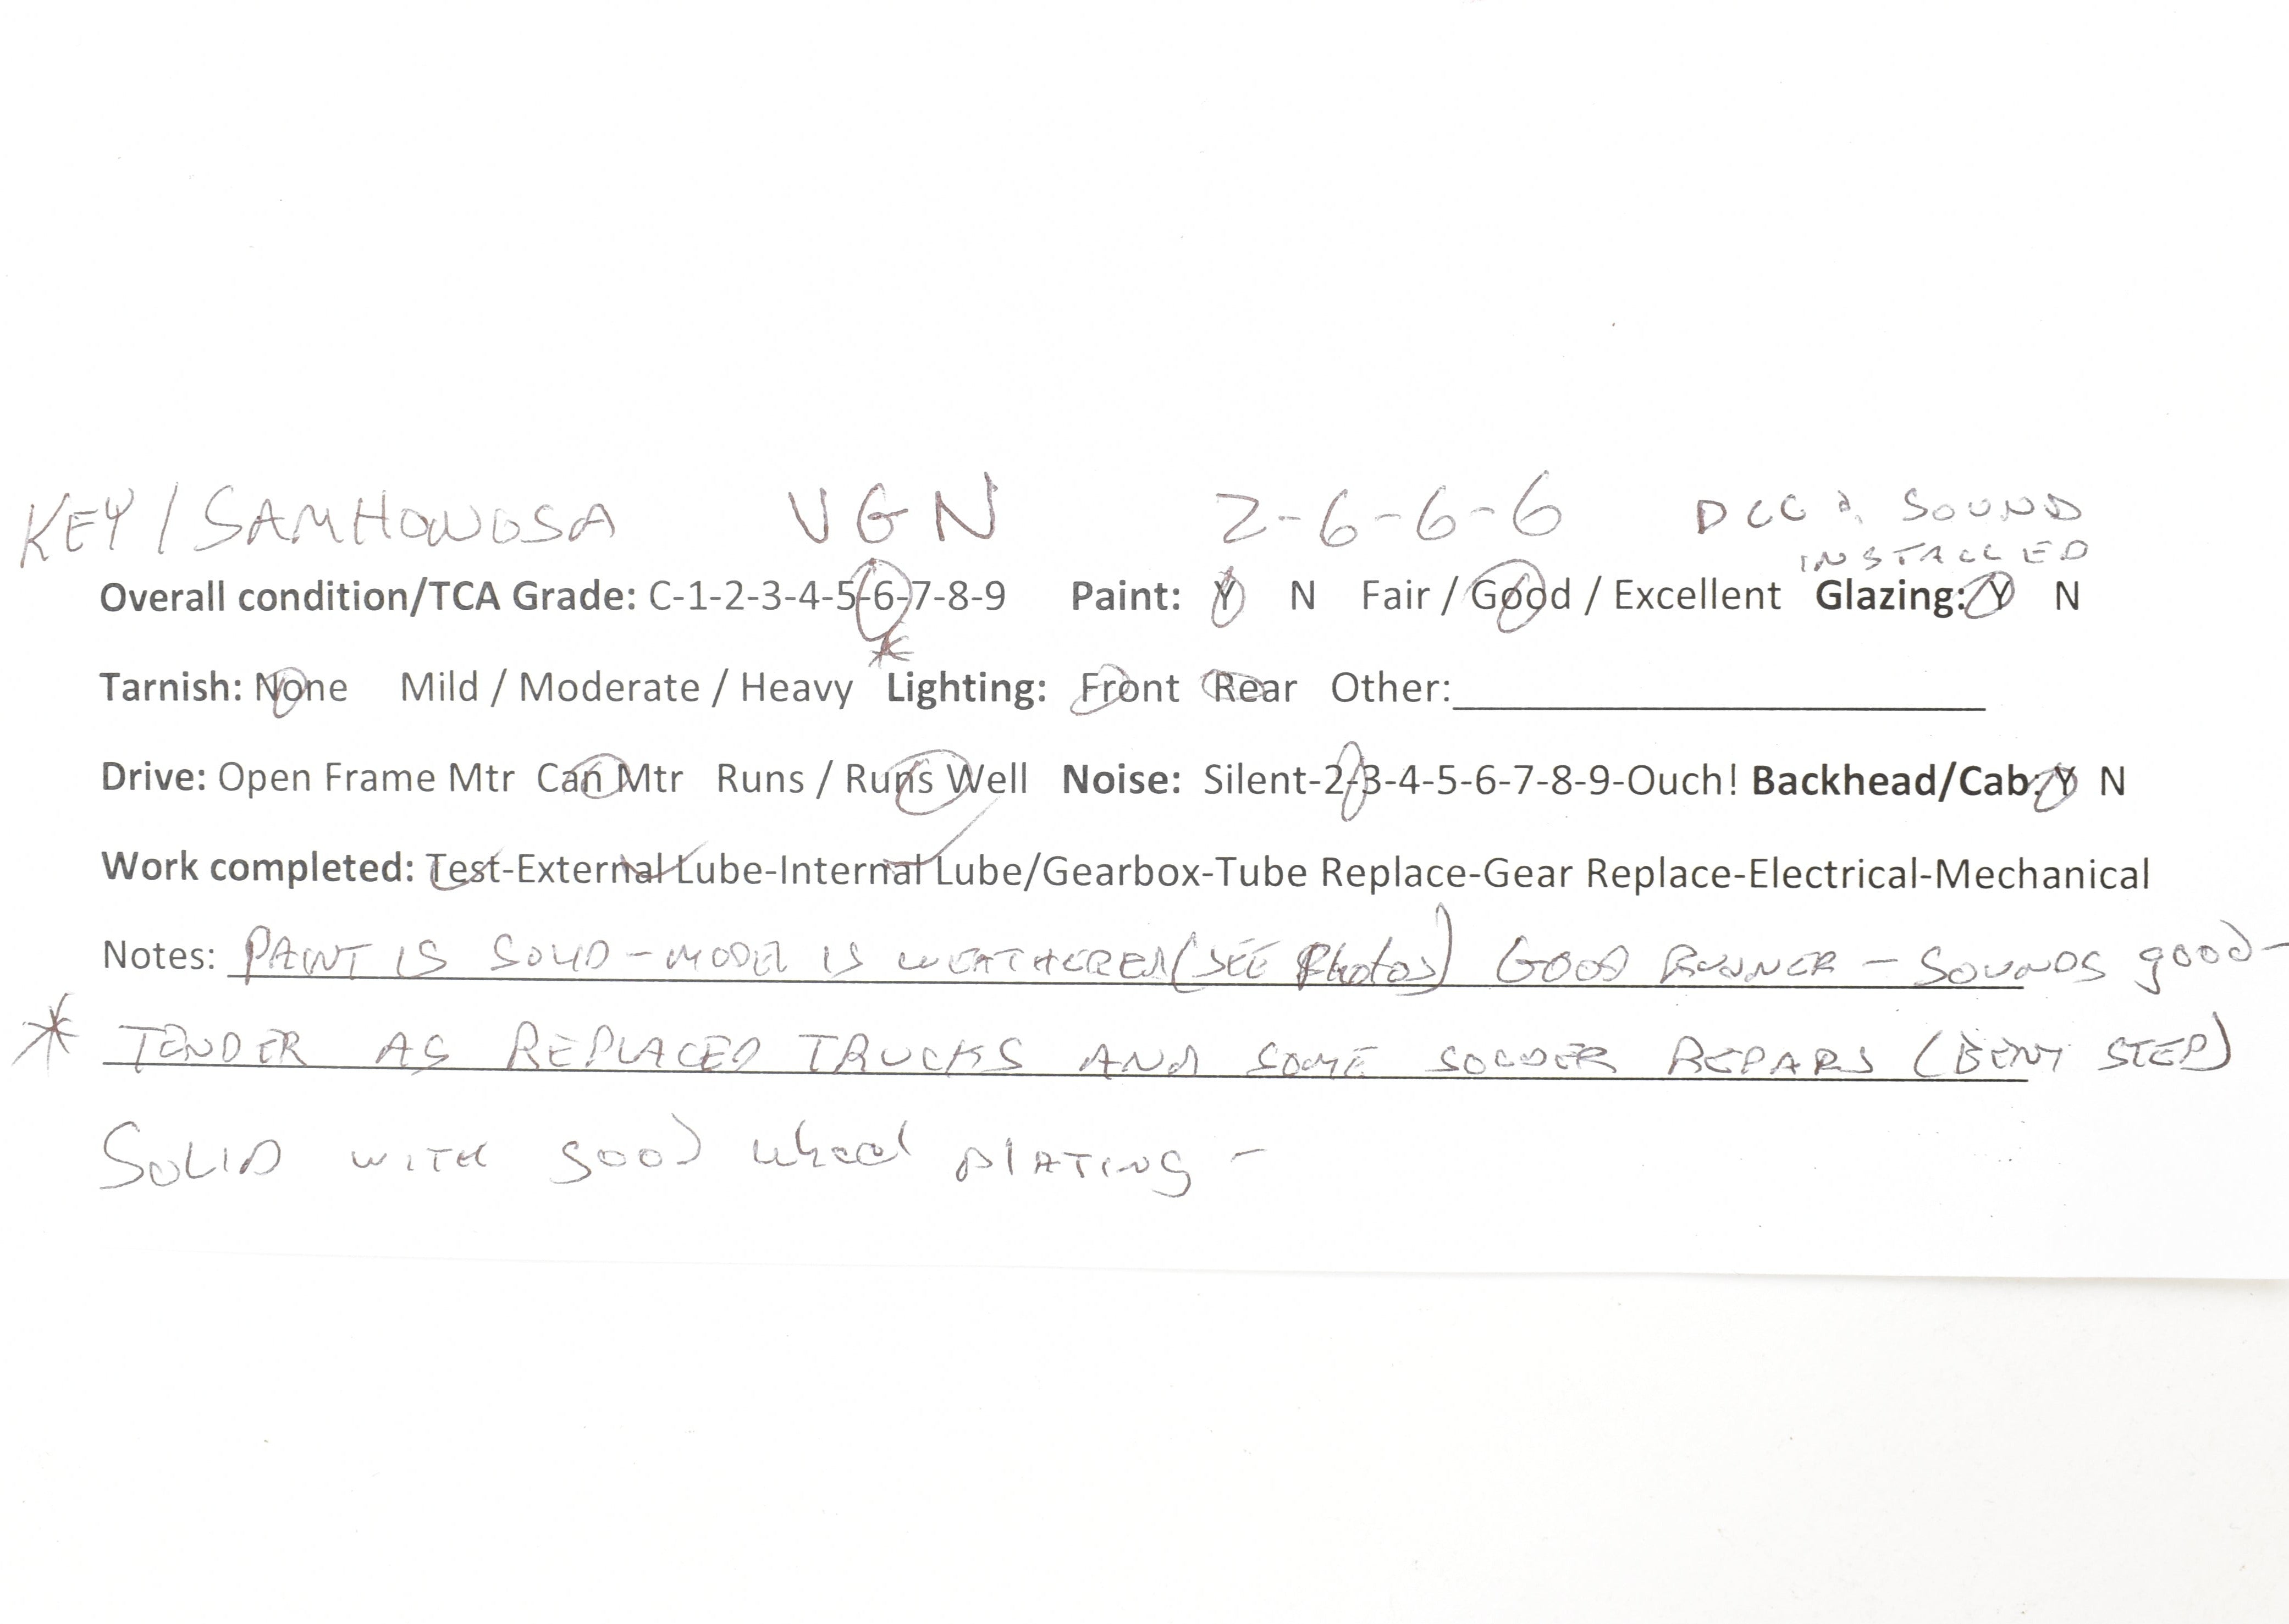 KEY / SAMHONGSA VGN 2-6-6-6 DCC & SOUND
INSTALLED
Overall condition/TCA Grade: C-1-2-3-4-5-6-7-8-9 Paint: Y N Fair / Good / Excellent Glazing: Y N
* 
Tarnish: None Mild / Moderate / Heavy Lighting: Front Rear Other:
Drive: Open Frame Mtr Can Mtr Runs / Runs Well Noise: Silent-2-3-4-5-6-7-8-9-Ouch! Backhead/Cab: Y N
Work completed: Test-External Lube-Internal Lube/Gearbox-Tube Replace-Gear Replace-Electrical-Mechanical
Notes: PAINT IS SOLID - MODEL IS WEATHERED (SEE Photos) GOOD RUNNER - SOUNDS good -
* TENDER AS REPLACED TRUCKS AND SOME SOLDER REPARS (BENT STEP)
SOLID WITH good wheel PLATING -